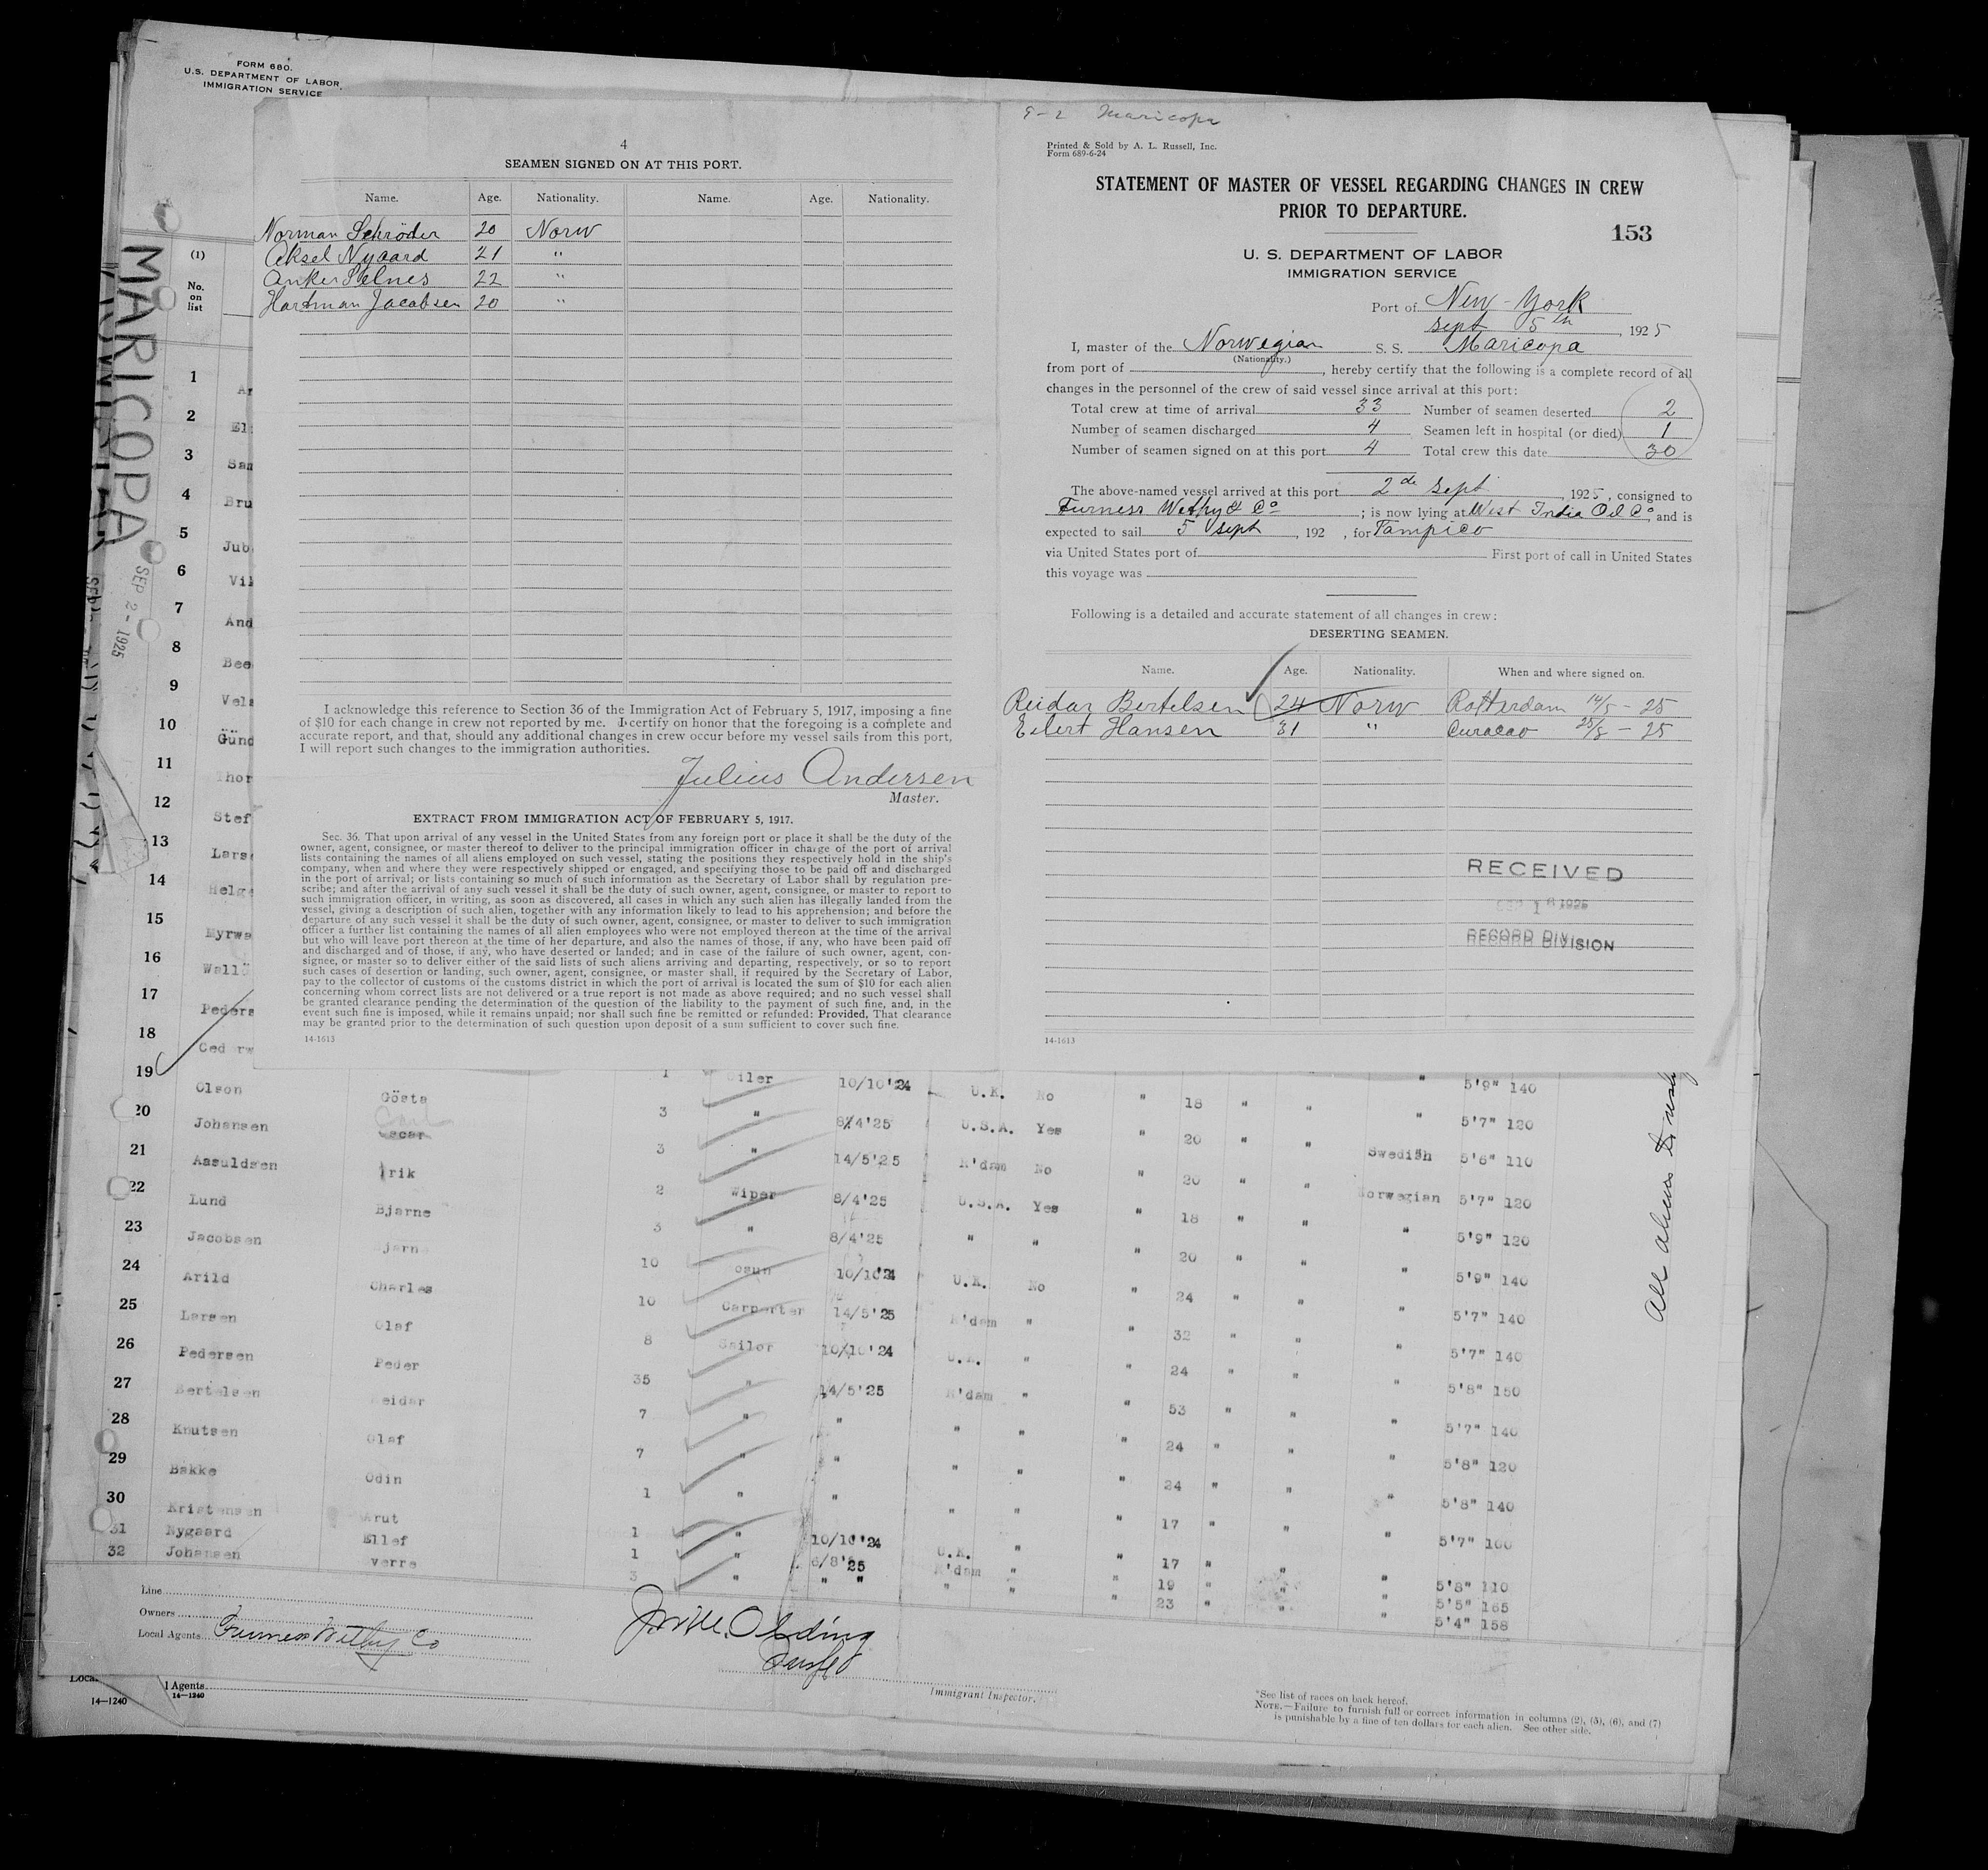 FORM 680.
U. S. DEPARTMENT OF LABOR
IMMIGRATION SERVICE
MARICOPA
SEP 2 - 1925
(1)
No. on list
4
SEAMEN SIGNED ON AT THIS PORT.
Name. Age. Nationality. Name. Age. Nationality.
Norman Schröder 20 Norw
Aksel Nygaard 21 "
Anker Selnes 22 "
Hartman Jacobsen 20 "
I acknowledge this reference to Section 36 of the Immigration Act of February 5, 1917, imposing a fine
of $10 for each change in crew not reported by me. I certify on honor that the foregoing is a complete and
accurate report, and that, should any additional changes in crew occur before my vessel sails from this port,
I will report such changes to the immigration authorities.
Julius Andersen
Master.
EXTRACT FROM IMMIGRATION ACT OF FEBRUARY 5, 1917.
Sec. 36. That upon arrival of any vessel in the United States from any foreign port or place it shall be the duty of the
owner, agent, consignee, or master thereof to deliver to the principal immigration officer in charge of the port of arrival
lists containing the names of all aliens employed on such vessel, stating the positions they respectively hold in the ship's
company, when and where they were respectively shipped or engaged, and specifying those to be paid off and discharged
in the port of arrival; or lists containing so much of such information as the Secretary of Labor shall by regulation pre-
scribe; and after the arrival of any such vessel it shall be the duty of such owner, agent, consignee, or master to report to
such immigration officer, in writing, as soon as discovered, all cases in which any such alien has illegally landed from the
vessel, giving a description of such alien, together with any information likely to lead to his apprehension; and before the
departure of any such vessel it shall be the duty of such owner, agent, consignee, or master to deliver to such immigration
officer a further list containing the names of all alien employees who were not employed thereon at the time of the arrival
but who will leave port thereon at the time of her departure, and also the names of those, if any, who have been paid off
and discharged and of those, if any, who have deserted or landed; and in case of the failure of such owner, agent, con-
signee, or master so to deliver either of the said lists of such aliens arriving and departing, respectively, or so to report
such cases of desertion or landing, such owner, agent, consignee, or master shall, if required by the Secretary of Labor,
pay to the collector of customs of the customs district in which the port of arrival is located the sum of $10 for each alien
concerning whom correct lists are not delivered or a true report is not made as above required; and no such vessel shall
be granted clearance pending the determination of the question of the liability to the payment of such fine, and, in the
event such fine is imposed, while it remains unpaid; nor shall such fine be remitted or refunded: Provided, That clearance
may be granted prior to the determination of such question upon deposit of a sum sufficient to cover such fine.
14-1613
9-2 Maricopa
Printed & Sold by A. L. Russell, Inc.
Form 689-6-24
STATEMENT OF MASTER OF VESSEL REGARDING CHANGES IN CREW
PRIOR TO DEPARTURE.
153
U. S. DEPARTMENT OF LABOR
IMMIGRATION SERVICE
Port of New-York
Sept 5th, 1925
I, master of the Norwegian S. S. Maricopa
(Nationality.)
from port of , hereby certify that the following is a complete record of all
changes in the personnel of the crew of said vessel since arrival at this port:
Total crew at time of arrival 33 Number of seamen deserted 2
Number of seamen discharged 4 Seamen left in hospital (or died) 1
Number of seamen signed on at this port 4 Total crew this date 30
The above-named vessel arrived at this port 2de Sept, 1925, consigned to
Furness Wethy & Co ; is now lying at West India Oil Co, and is
expected to sail 5 Sept, 192 , for Tampico
via United States port of First port of call in United States
this voyage was
Following is a detailed and accurate statement of all changes in crew:
DESERTING SEAMEN.
Name. Age. Nationality. When and where signed on.
Reidar Bertelsen 24 Norw Rotterdam 14/5 - 25
Eilert Hansen 31 " Curacao 25/8 - 25
RECEIVED
RECORD DIVISION
14-1613
All aliens
1 Ar
2 El
3 San
4 Bru
5 Jub
6 Vil
7 And
8 Bee
9 Vels
10 Günd
11 Thor
12 Stef
13 Lars
14 Helge
15 Myrwa
16 Wallö
17 Peders
18 Cederw
19 Olson Gösta 1 Oiler 10/10'24 U.K. No " 18 " " " 5'9" 140
20 Johansen Oscar Carl 3 " 8/4'25 U.S.A. Yes " 20 " " " 5'7" 120
21 Aasuldsen Erik 3 " 14/5'25 R'dam No " 20 " " Swedish 5'6" 110
22 Lund Bjarne 2 Wiper 8/4'25 U.S.A. Yes " 18 " " Norwegian 5'7" 120
23 Jacobsen Bjarne 3 " 8/4'25 " " " 20 " " " 5'9" 120
24 Arild Charles 10 Bosun 10/10'24 U.K. No " 24 " " " 5'9" 140
25 Larsen Olaf 10 Carpenter 14/5'25 R'dam " " 32 " " " 5'7" 140
26 Pedersen Peder 8 Sailor 10/10'24 U.K. " " 24 " " " 5'7" 140
27 Bertelsen Reidar 35 " 14/5'25 R'dam " " 53 " " " 5'8" 150
28 Knutsen Olaf 7 " " " " " 24 " " " 5'7" 140
29 Bakke Odin 7 " " " " " 24 " " " 5'8" 120
30 Kristensen Knut 1 " " " " " 17 " " " 5'8" 140
31 Nygaard Ellef 1 " 10/10'24 U.K. " " 17 " " " 5'7" 160
32 Johansen Sverre 1 " 6/8'25 R'dam " " 19 " " " 5'8" 110
3 " " " " " " 23 " " " 5'5" 165
5'4" 158
Line
Owners
Local Agents Furness Withy Co
Immigrant Inspector.
Local Agents
14—1240
14—1240
*See list of races on back hereof.
NOTE.—Failure to furnish full or correct information in columns (2), (5), (6), and (7)
is punishable by a fine of ten dollars for each alien. See other side.